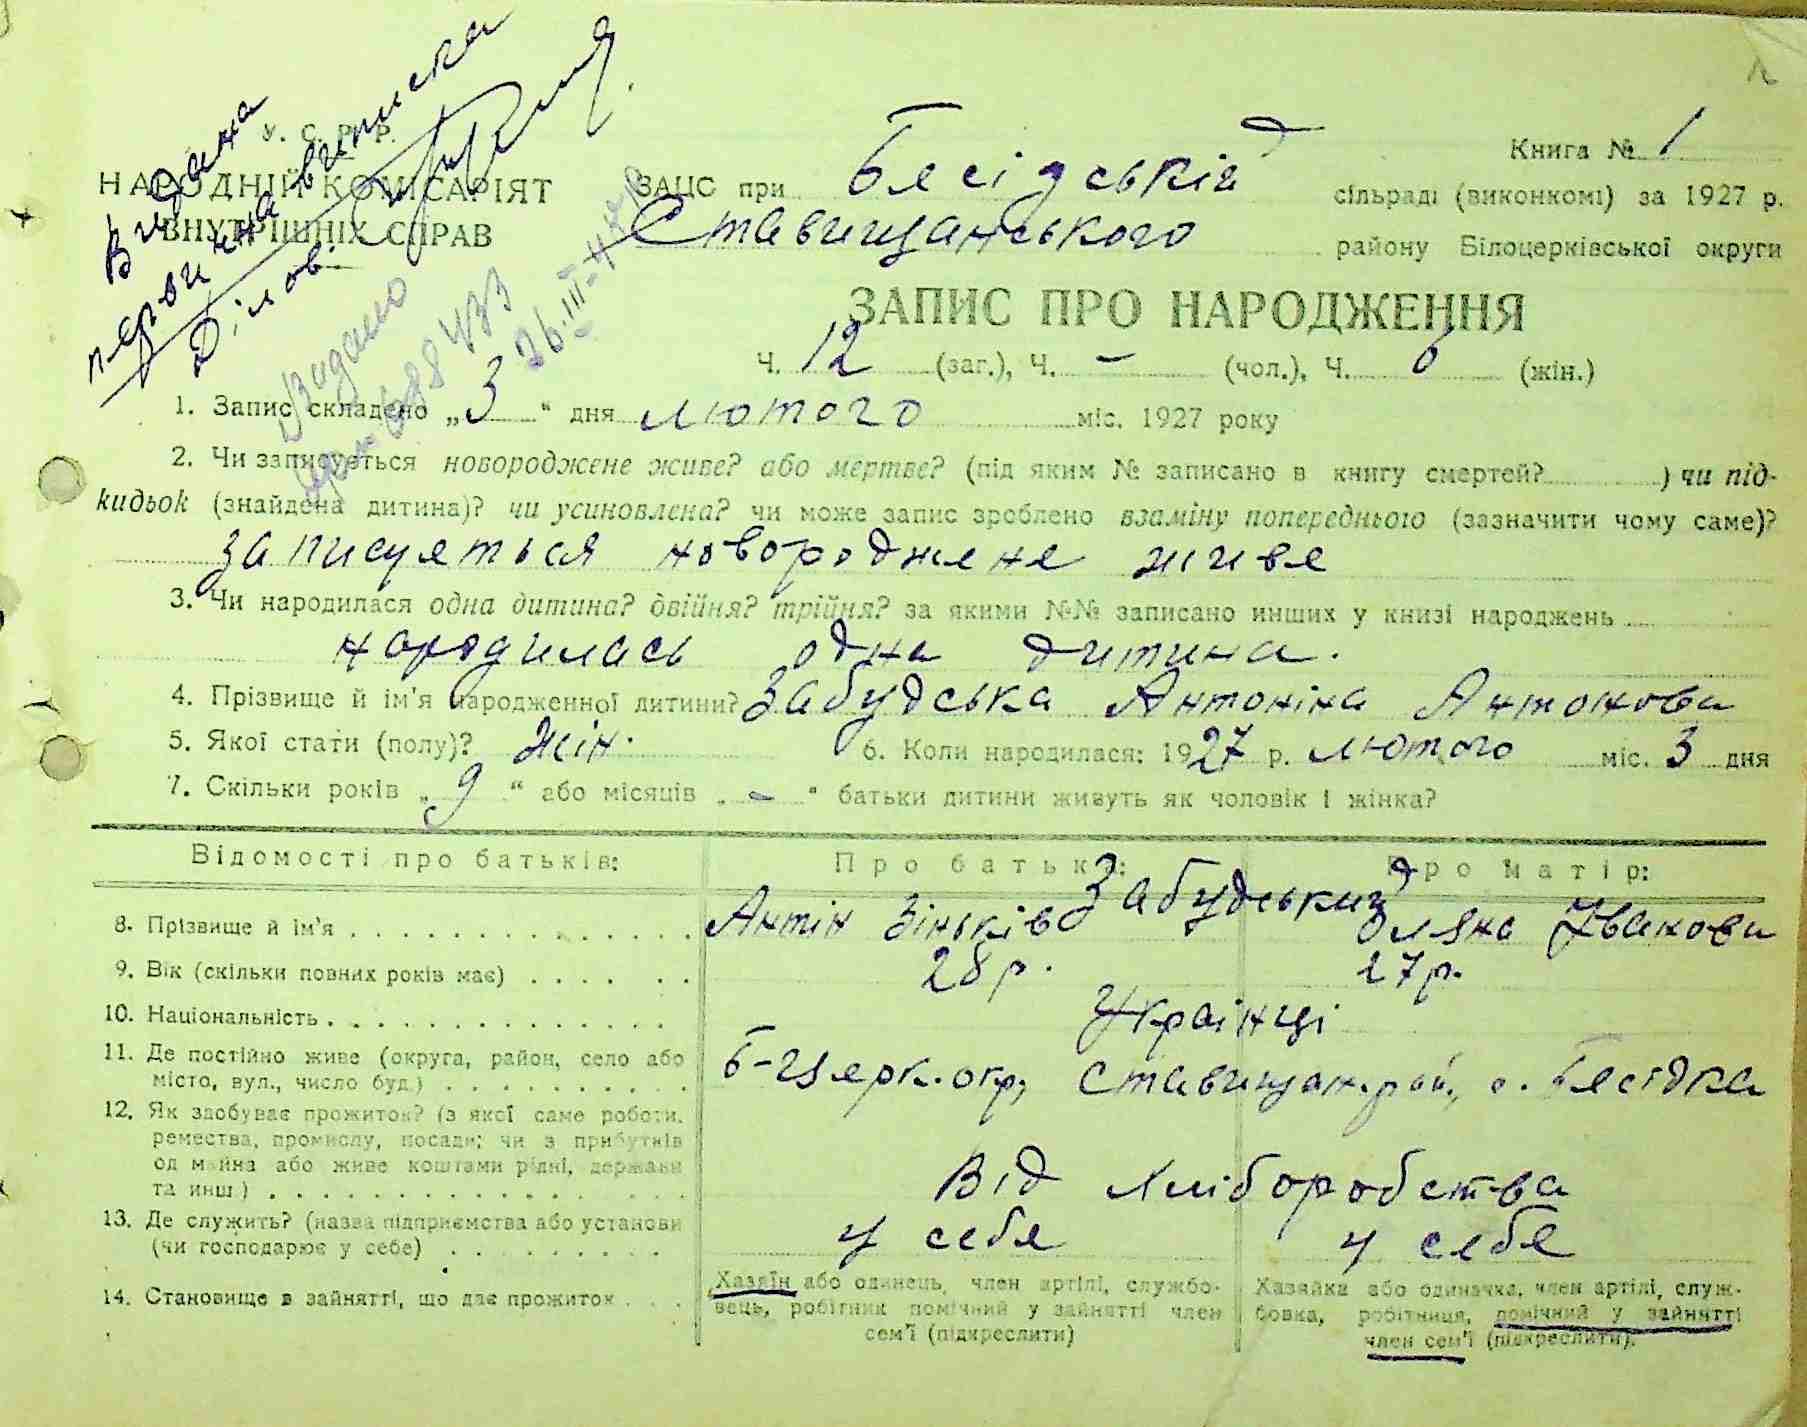 Видана
первична виписка
Діловод
Видано
688433
26.III-44 р
У. С. Р. Р.
НАРОДНІЙ КОМІСАРІЯТ
ВНУТРІШНІХ СПРАВ
Книга № 1
ЗАЦС при Бесідській сільраді (виконкомі) за 1927 р.
Ставищанського району Білоцерківської округи
ЗАПИС ПРО НАРОДЖЕННЯ
Ч. 12 (заг.), Ч. – (чол.), Ч. 6 (жін.)
1. Запис складено „3“ дня лютого міс. 1927 року
2. Чи записується новороджене живе? або мертве? (під яким № записано в книгу смертей? ) чи під-
кидьок (знайдена дитина)? чи усиновлена? чи може запис зроблено взаміну попереднього (зазначити чому саме)?
записуеться новороджене живе
3. Чи народилася одна дитина? двійня? трійня? за якими №№ записано инших у книзі народжень
народилась одна дитина.
4. Прізвище й ім'я народженної дитини? Забудська Антоніна Антонова
5. Якої стати (полу)? Жін. 6. Коли народилася: 1927 р. лютого міс. 3 дня
7. Скільки років „9“ або місяців „–“ батьки дитини живуть як чоловік і жінка?
Відомості про батьків: Про батька: Про матір:
Забудський
8. Прізвище й ім'я Антін Зіньків Оляна Іванова
9. Вік (скільки повних років має) 28 р. 27 р.
10. Національність Українці
11. Де постійно живе (округа, район, село або
місто, вул., число буд.) Б-Церк. окр, Ставищан. рай., с. Бесідка
12. Як здобуває прожиток? (з якої саме роботи,
ремества, промислу, посади; чи з прибутків
од майна або живе коштами рідні, держави
та инш.) Від хліборобства
13. Де служить? (назва підприємства або установи
(чи господарює у себе) у себе у себе
14. Становище в зайнятті, що дає прожиток
Хазяїн або одинець, член артілі, службо-
вець, робітник помічний у зайнятті член
сем'ї (підкреслити)
Хазяйка або одиначка, член артілі, служ-
бовка, робітниця, помічний у зайнятті
член сем'ї (підкреслити).